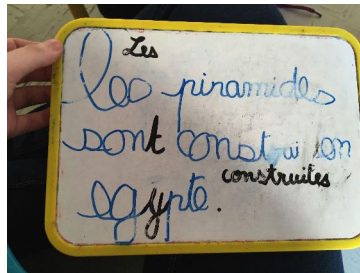 Les
les piramides
sont constru en
construites
egypte.